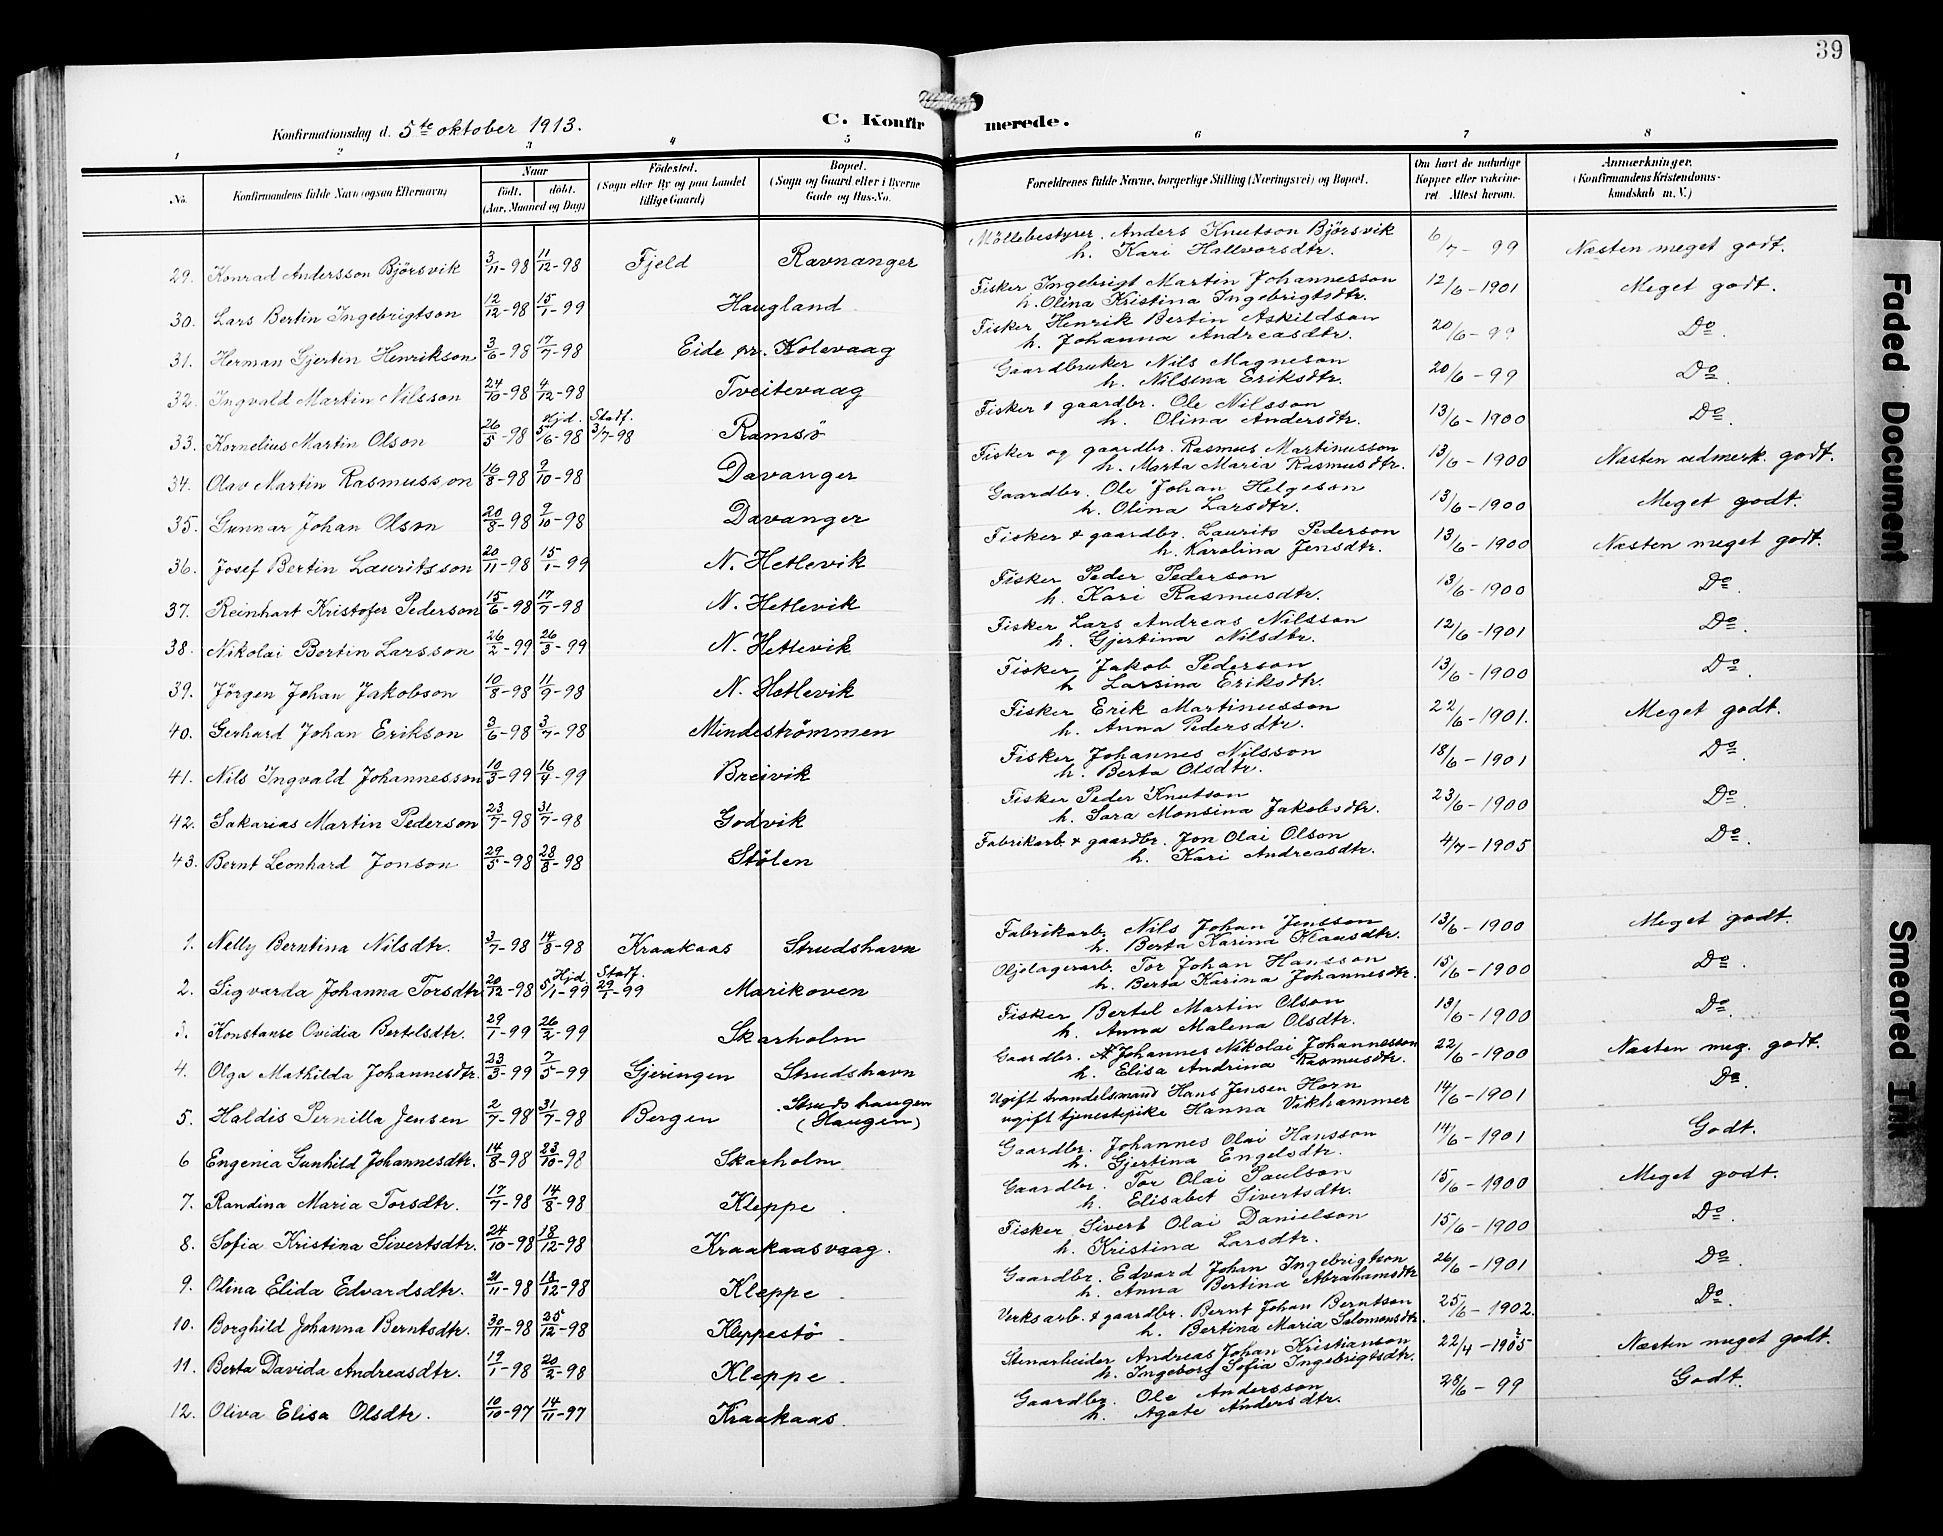 39
Konfirmationsdag d. 5te oktober 1913.
C. Konfirmerede.
1 2 3 4 5 6 7 8
No. Konfirmandens fulde Navn (ogsaa Efternavn) Naar født. døbt. (Aar, Maaned og Dag) Fødested. (Sogn eller By og paa Landet tillige Gaard) Bopæl. (Sogn og Gaard eller i Byerne Gade og Hus-No. Forældrenes fulde Navne, borgerlige Stilling (Næringsvei) og Bopæl. Om havt de naturlige Kopper eller vakcineret. Attest herom. Anmærkninger. (Konfirmandens Kristendomskundskab m. V.)
29. Konrad Andersson Björsvik 3/11-98 11/12-98 Fjeld Ravnanger Möllebestyrer. Anders Knutson Björsvik h. Kari Hallvorsdtr. 6/7-99 Næsten meget godt.
30. Lars Bertin Ingebrigtson 12/12-98 15/1-99 Haugland Fisker Ingebrigt Martin Johannesson h. Olina Kristina Ingebrigtsdtr. 12/6-1901 Meget godt.
31. Herman Gjertin Henrikson 3/6-98 17/7-98 Eide pr. Kolevaag Fisker Henrik Bertin Askildson h. Johanna Andreasdtr. 20/6-99 Do.
32. Ingvald Martin Nilsson 24/10-98 4/12-98 Tveitevaag Gaardbruker Nils Magneson h. Nilsina Eriksdtr. 20/6-99 Do.
33. Kornelius Martin Olson 26/5-98 Hjd. 5/6-98 Stadf. 3/7-98 Ramsö Fisker & gaardbr. Ole Nilsson h. Olina Andersdtr. 13/6-1900 Do.
34. Olav Martin Rasmusson 16/8-98 9/10-98 Davanger Fisker og gaardbr. Rasmus Martinusson h. Marta Maria Rasmusdtr. 13/6-1900 Næsten udmerk. godt.
35. Gunnar Johan Olson 20/8-98 9/10-98 Davanger Gaardbr. Ole Johan Helgeson h. Olina Larsdtr. 13/6-1900 Meget godt.
36. Josef Bertin Lauritsson 20/11-98 15/1-99 N. Hetlevik Fisker & gaardbr. Laurits Pederson h. Karolina Jensdtr. 13/6-1900 Næsten meget godt.
37. Reinhart Kristofer Pederson 15/6-98 17/7-98 N. Hetlevik Fisker Peder Pederson h. Kari Rasmusdtr. 13/6-1900 Do.
38. Nikolai Bertin Larsson 26/2-99 26/3-99 N. Hetlevik Fisker Lars Andreas Nilsson h. Gjertina Nilsdtr. 12/6-1901 Do.
39. Jörgen Johan Jakobson 10/8-98 11/9-98 N. Hetlevik Fisker Jakob Pederson h. Larsina Eriksdtr. 13/6-1900 Do.
40. Gerhard Johan Erikson 3/6-98 3/7-98 Mindeströmmen Fisker Erik Martinusson h. Anna Pedersdtr. 22/6-1901. Meget godt.
41. Nils Ingvald Johannesson 10/3-99 16/4-99 Breivik Fisker Johannes Nilsson h. Berta Olsdtr. 18/6-1901 Do.
42. Sakarias Martin Pederson 23/7-98 31/7-98 Godvik Fisker Peder Knutson h. Sara Monsina Jakobsdtr. 23/6-1900 Do.
43. Bernt Leonhard Jonson 29/5-98 28/8-98 Stölen Fabrikarb. & gaardbr. Jon Olai Olson h. Kari Andreasdtr. 4/7-1905 Do.
1. Nelly Berntina Nilsdtr. 3/7-98 14/8-98 Kraakaas Strudshavn Fabrikarb. Nils Johan Jensson h. Berta Karina Klausdtr. 13/6-1900 Meget godt.
2. Sigvarda Johanna Torsdtr 20/12-98 Hjd. 5/1-99 Stadf. 29/1-99 Marikoven Oljelagerarb. Tor Johan Hansson h. Berta Karina Johannesdtr. 15/6-1900 Do.
3. Konstanse Ovidia Bertelsdtr. 29/1-99 26/2-99 Skarholm Fisker Bertel Martin Olson h. Anna Malena Olsdtr. 13/6-1900 Do.
4. Olga Mathilda Johannesdtr. 23/3-99 7/5-99 Gjeringen Strudshavn Gaardbr. Johannes Nikolai Johannesson h. Elisa Andrina Rasmusdtr. 22/6-1900 Næsten meg. godt.
5. Haldis Pernilla Jensen 2/7-98 31/7-98 Bergen Strudshaugen (Haugen) Ugift handelsmand Hans Jensen Horn ugift tjenestepike Hanna Vikhammer 14/6-1901 Do.
6 Engenia Gunhild Johannesdtr. 14/8-98 23/10-98 Skarholm Gaardbr. Johannes Olai Hansson h. Gjertina Engelsdtr. 14/6-1901 Godt.
7. Randina Maria Torsdtr. 17/7-98 14/8-98 Kleppe Gaardbr. Tor Olai Paulson h. Elisabet Sivertsdtr. 15/6-1900 Meget godt.
8. Sofia Kristina Sivertsdtr. 24/10-98 18/12-98 Kraakaasvaag. Fisker Sivert Olai Danielson h. Kristina Larsdtr. 15/6-1900 Do.
9. Olina Elida Edvardsdtr. 21/11-98 18/12-98 Kleppe Gaardbr. Edvard Johan Ingebrigtson h. Anna Bertina Abrahamsdtr 26/6-1901 Do.
10. Borghild Johanna Berntsdtr. 30/11-98 25/12-98 Kleppestö Verksarb. & gaardbr. Bernt Johan Berntson h. Bertina Maria Salomonsdtr. 25/6-1902. Do.
11. Berta Davida Andreasdtr. 19/1-98 20/2-98 Kleppe Stenarbeider Andreas Johan Kristianson h. Ingeborg Sofia Ingebrigtsdtr. 22/4-1905 Næsten meget godt.
12. Oliva Elisa Olsdtr. 10/10-97 14/11-97 Kraakaas. Gaardbr. Ole Andersson h. Agate Andersdtr. 28/6-99 Godt.
Faded Document
Smeared Ink